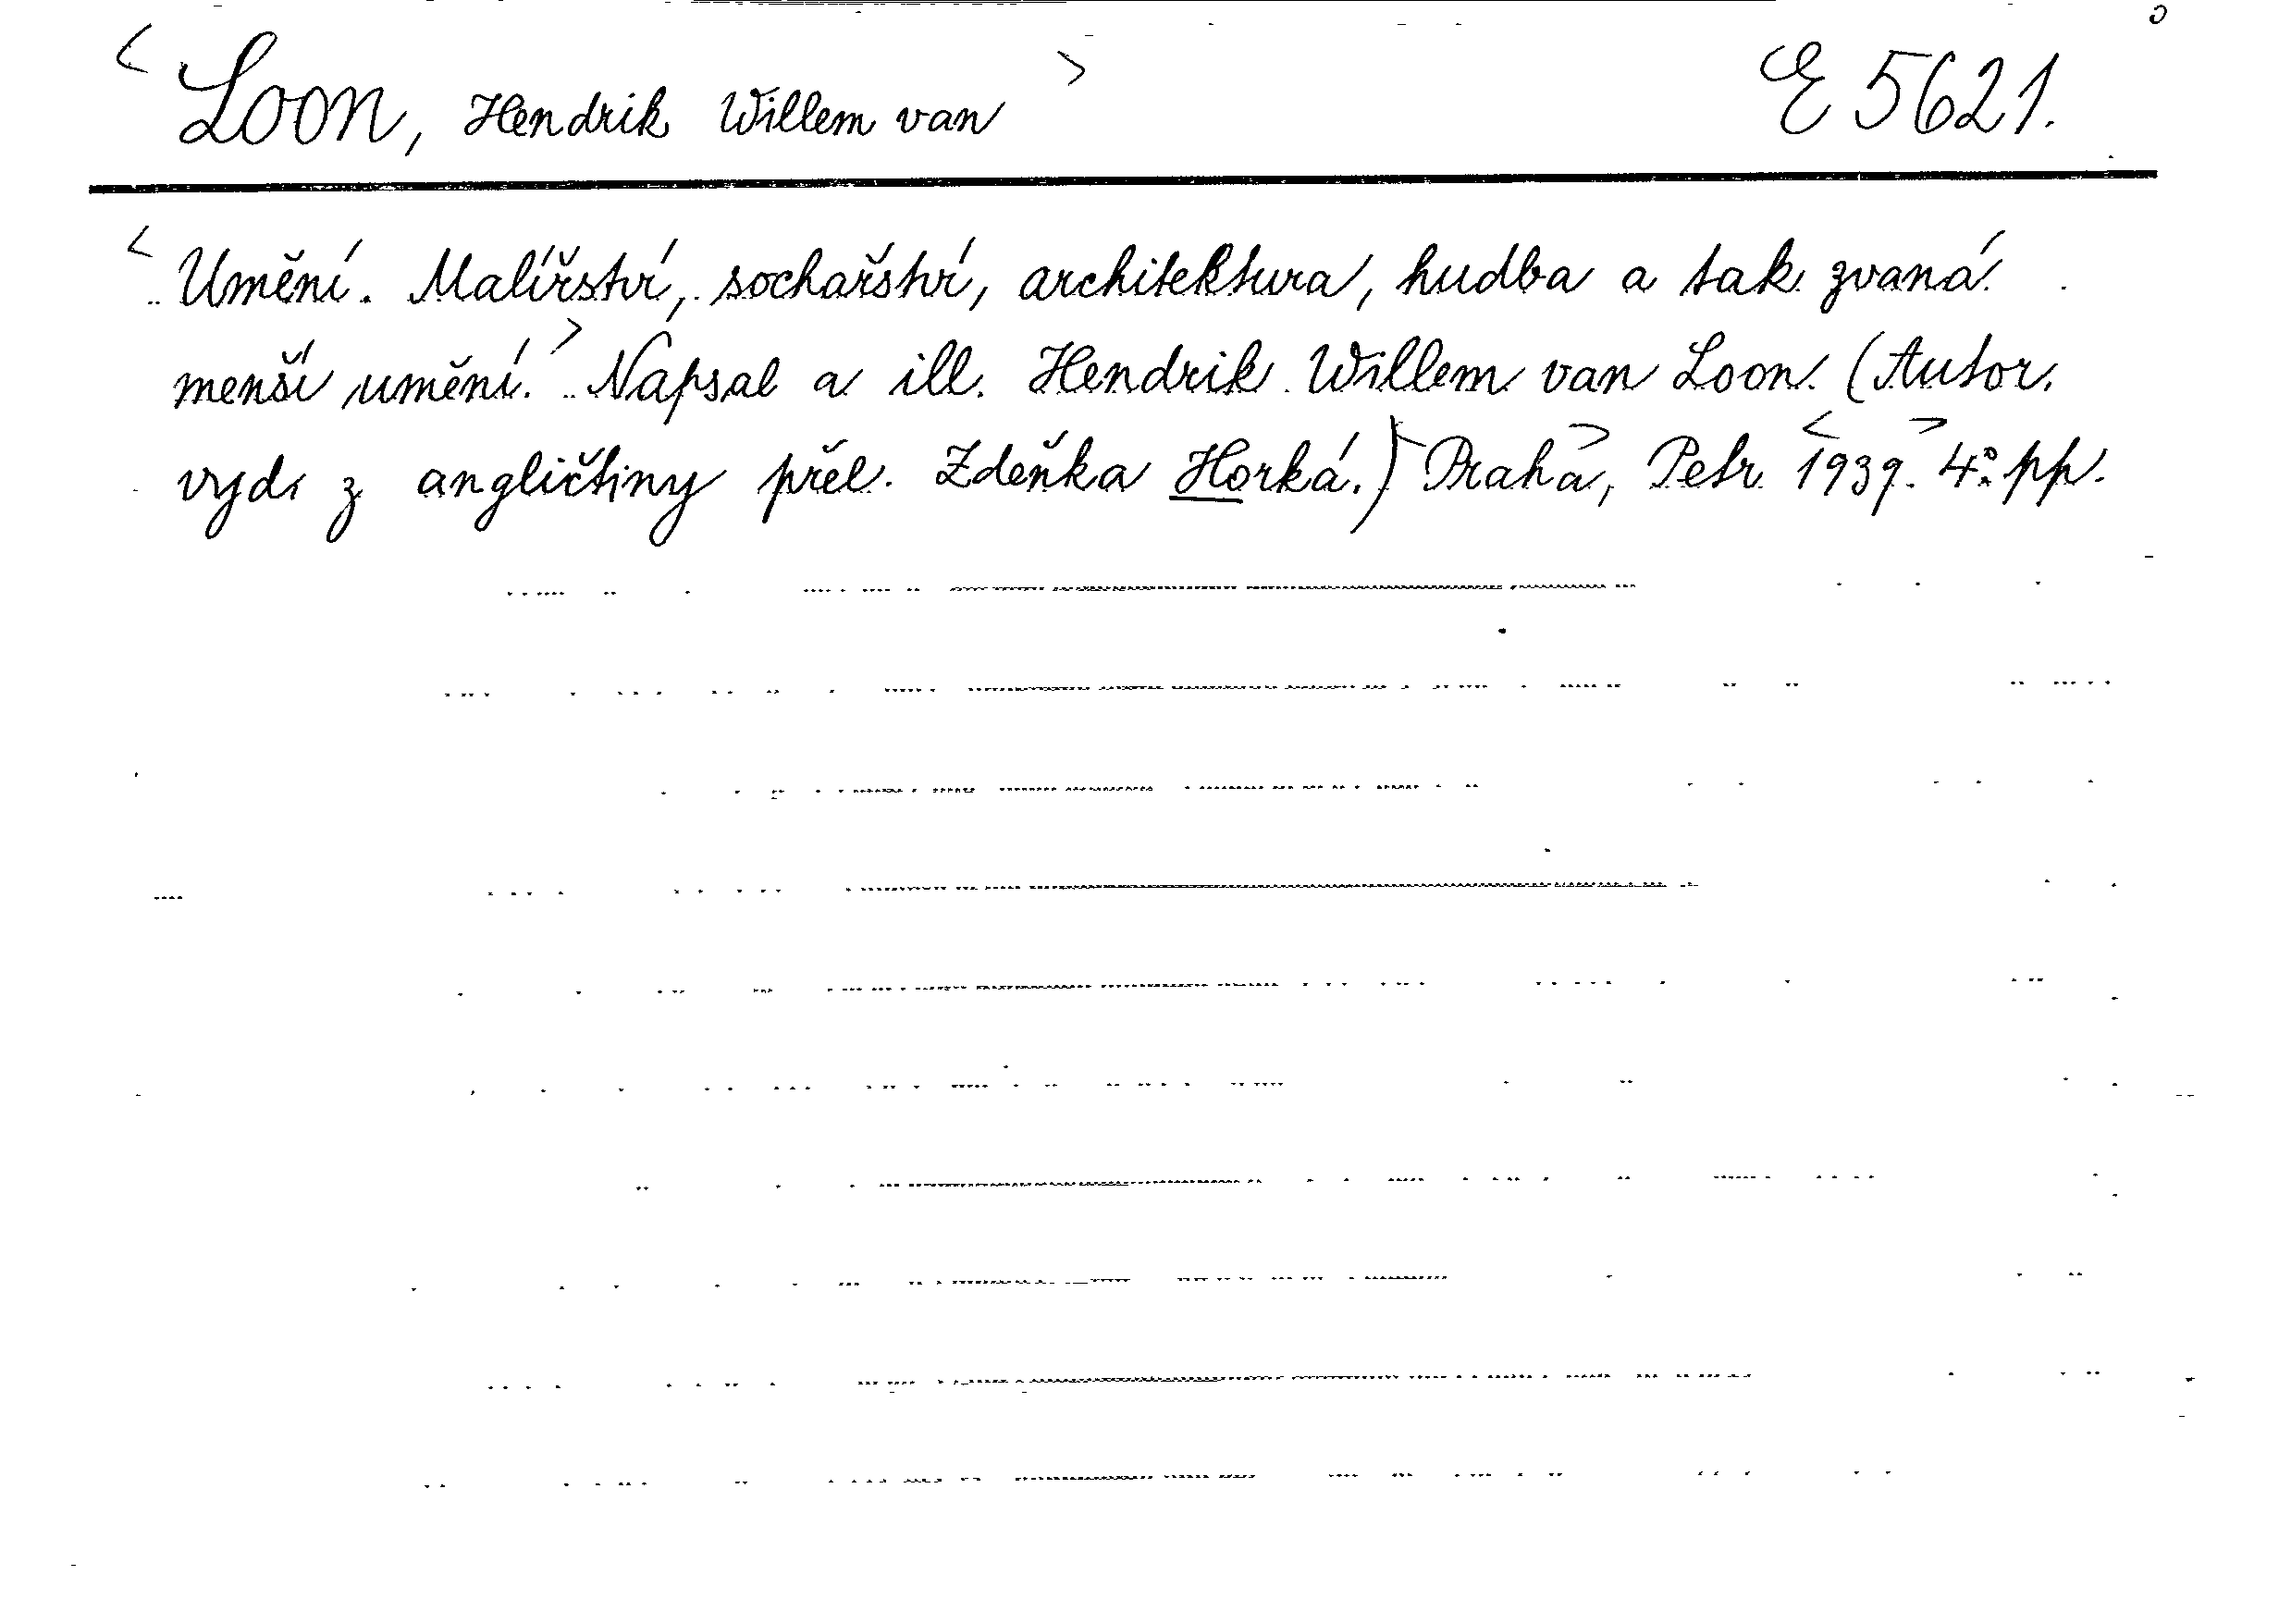 < Loon, Hendrik Willem van > E 5621.
< Umění. Malířství, sochařství, architektura, hudba a tak zvaná
menší umění. > Napsal a ill. Hendrik Willem van Loon. (Autor.
vyd. z angličtiny přel. Zdeňka Horká.) < Praha >, Petr < 1939 >. 4° pp.